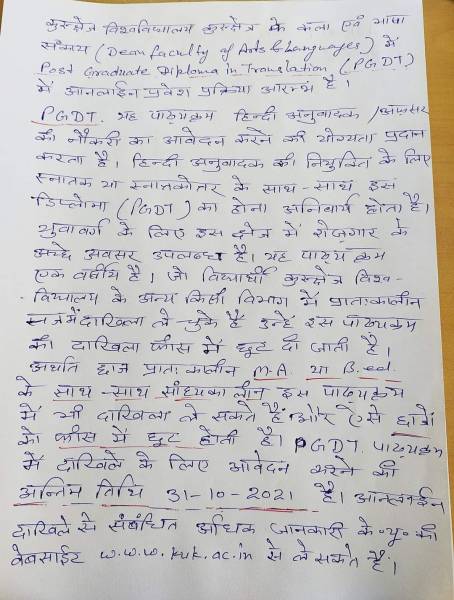 कुरुक्षेत्र विश्वविद्यालय कुरुक्षेत्र के कला एवं भाषा
संकाय (Dean faculty of Arts & Languages) में
Post Graduate Diploma in Translation (PGDT)
में आनलाईन प्रवेश प्रक्रिया आरम्भ है।
PGDT. यह पाठ्यक्रम हिन्दी अनुवादक /अफसर
की नौकरी का आवेदन करने की योग्यता प्रदान
करता है। हिन्दी अनुवादक की नियुक्ति के लिए
स्नातक या स्नातकोतर के साथ-साथ इस
डिप्लोमा (PGDT) का होना अनिवार्य होता है।
युवावर्ग के लिए इस क्षेत्र में रोजगार के
अच्छे अवसर उपलब्ध है। यह पाठ्यक्रम
एक वर्षीय है। जो विद्यार्थी कुरुक्षेत्र विश्व-
विद्यालय के अन्य किसी विभाग में प्रातःकालीन
में दाखिला ले चुके हैं उन्हें इस पाठ्यक्रम
की दाखिला फीस में छूट दी जाती है।
अर्थात छात्र प्रातः कालीन M.A या B.ed.
के साथ-साथ सांध्यकालीन इस पाठ्यक्रम
में भी दाखिला ले सकते हैं और ऐसे छात्रों
को फीस में छूट होती है। PGDT. पाठ्यक्रम
में दाखिले के लिए आवेदन करने की
अन्तिम तिथि 31-10-2021 है। आनलाईन
दाखिले से संबंधित अधिक जानकारी के॰यू॰ की
वेबसाईट w.w.w.kuk.ac.in से ले सकते हैं।